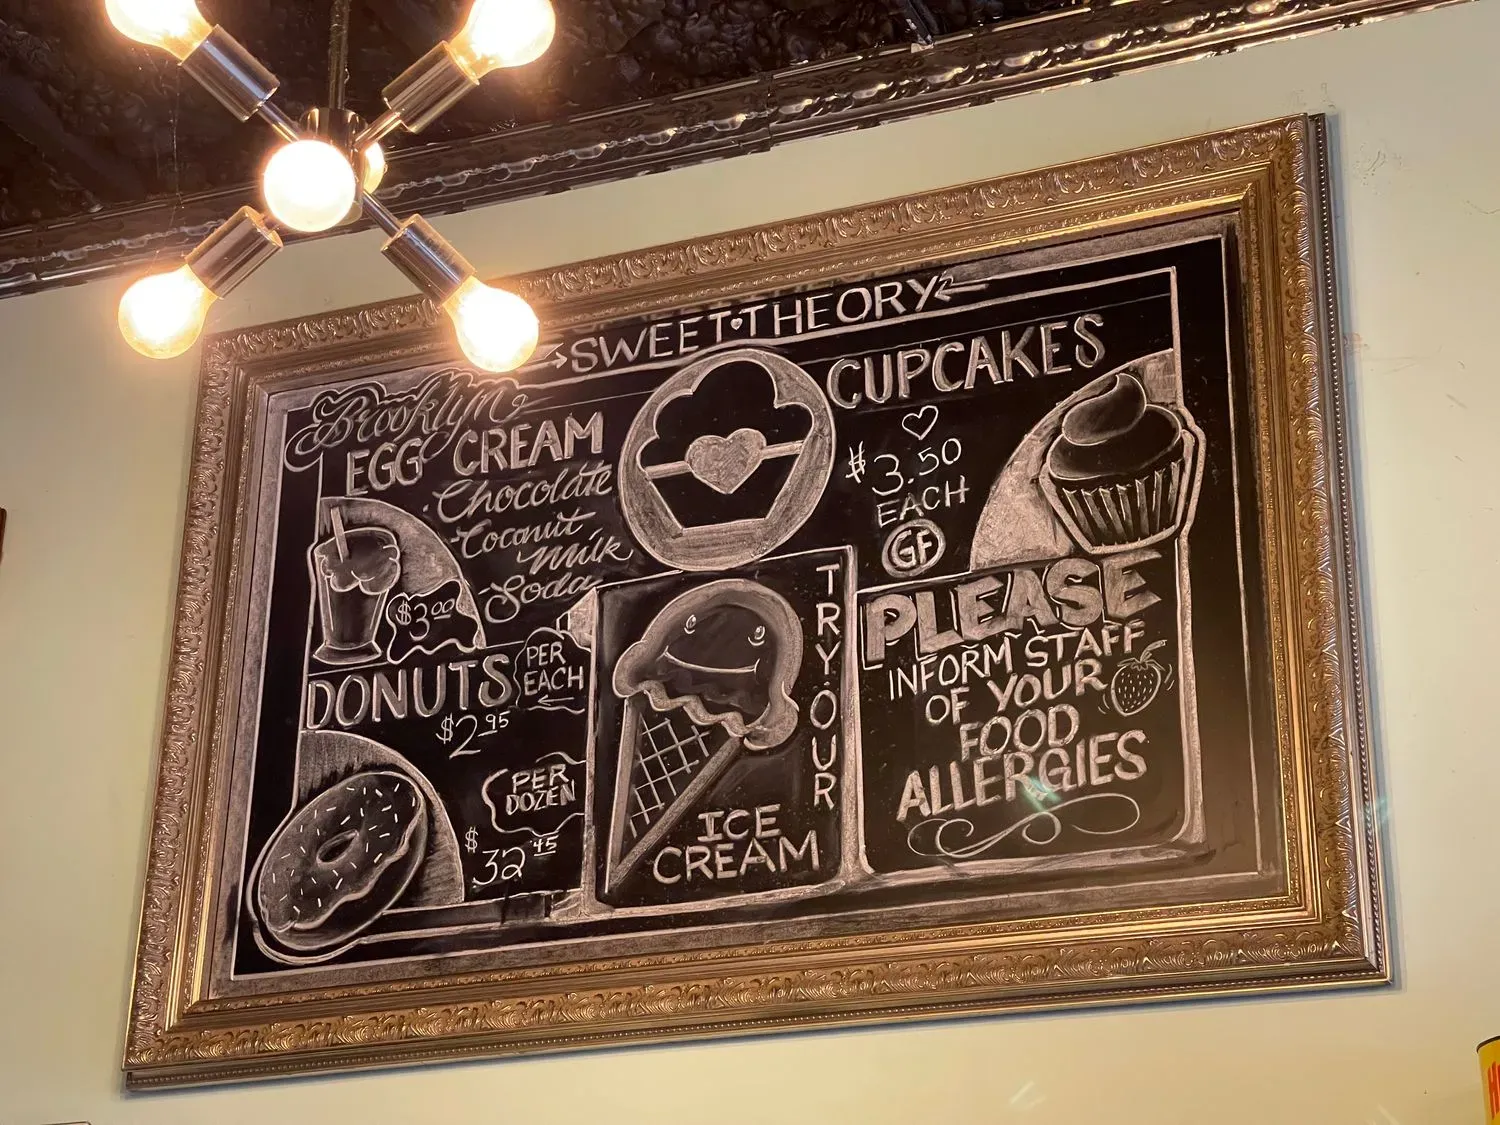 SWEET THEORY
Brooklyn
EGG CREAM
Chocolate
Coconut
Milk
Soda
$3.00
DONUTS
PER
EACH
$2.95
PER
DOZEN
$32.45
TRY OUR
ICE
CREAM
CUPCAKES
$3.50
EACH
GF
PLEASE
INFORM STAFF
OF YOUR
FOOD
ALLERGIES